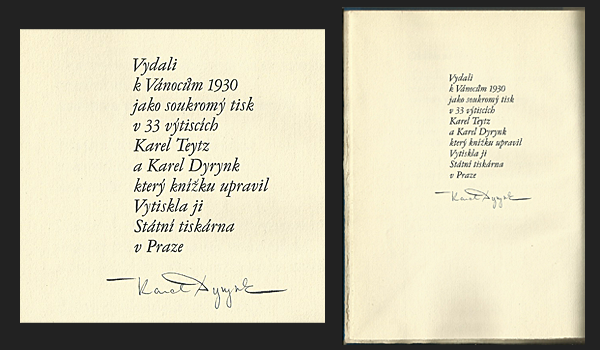 Vydali
k Vánocům 1930
jako soukromý tisk
v 33 výtiscích
Karel Teytz
a Karel Dyrynk
který knížku upravil
Vytiskla ji
Státní tiskárna
v Praze
Karel Dyrynk
Vydali
k Vánocům 1930
jako soukromý tisk
v 33 výtiscích
Karel Teytz
a Karel Dyrynk
který knížku upravil
Vytiskla ji
Státní tiskárna
v Praze
Karel Dyrynk